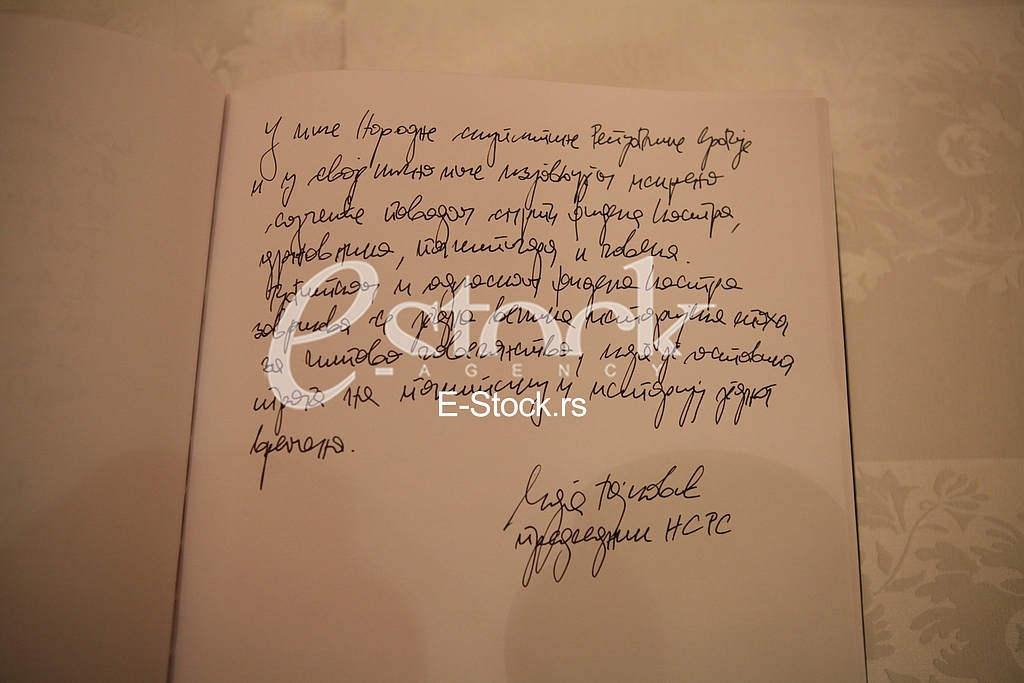 У име Народне скупштине Републике Србије
и у своје лично име изјављујем искрено
саучешће поводом смрти Фидела Кастра,
државника, политичара и човека.
Одласком Фидела Кастра
завршава се једна велика историјска епоха
за читаво човечанство, која је оставила
трага на политику и историју једног
времена.
estock
AGENCY
E-Stock.rs
Маја Гојковић
председник НСРС